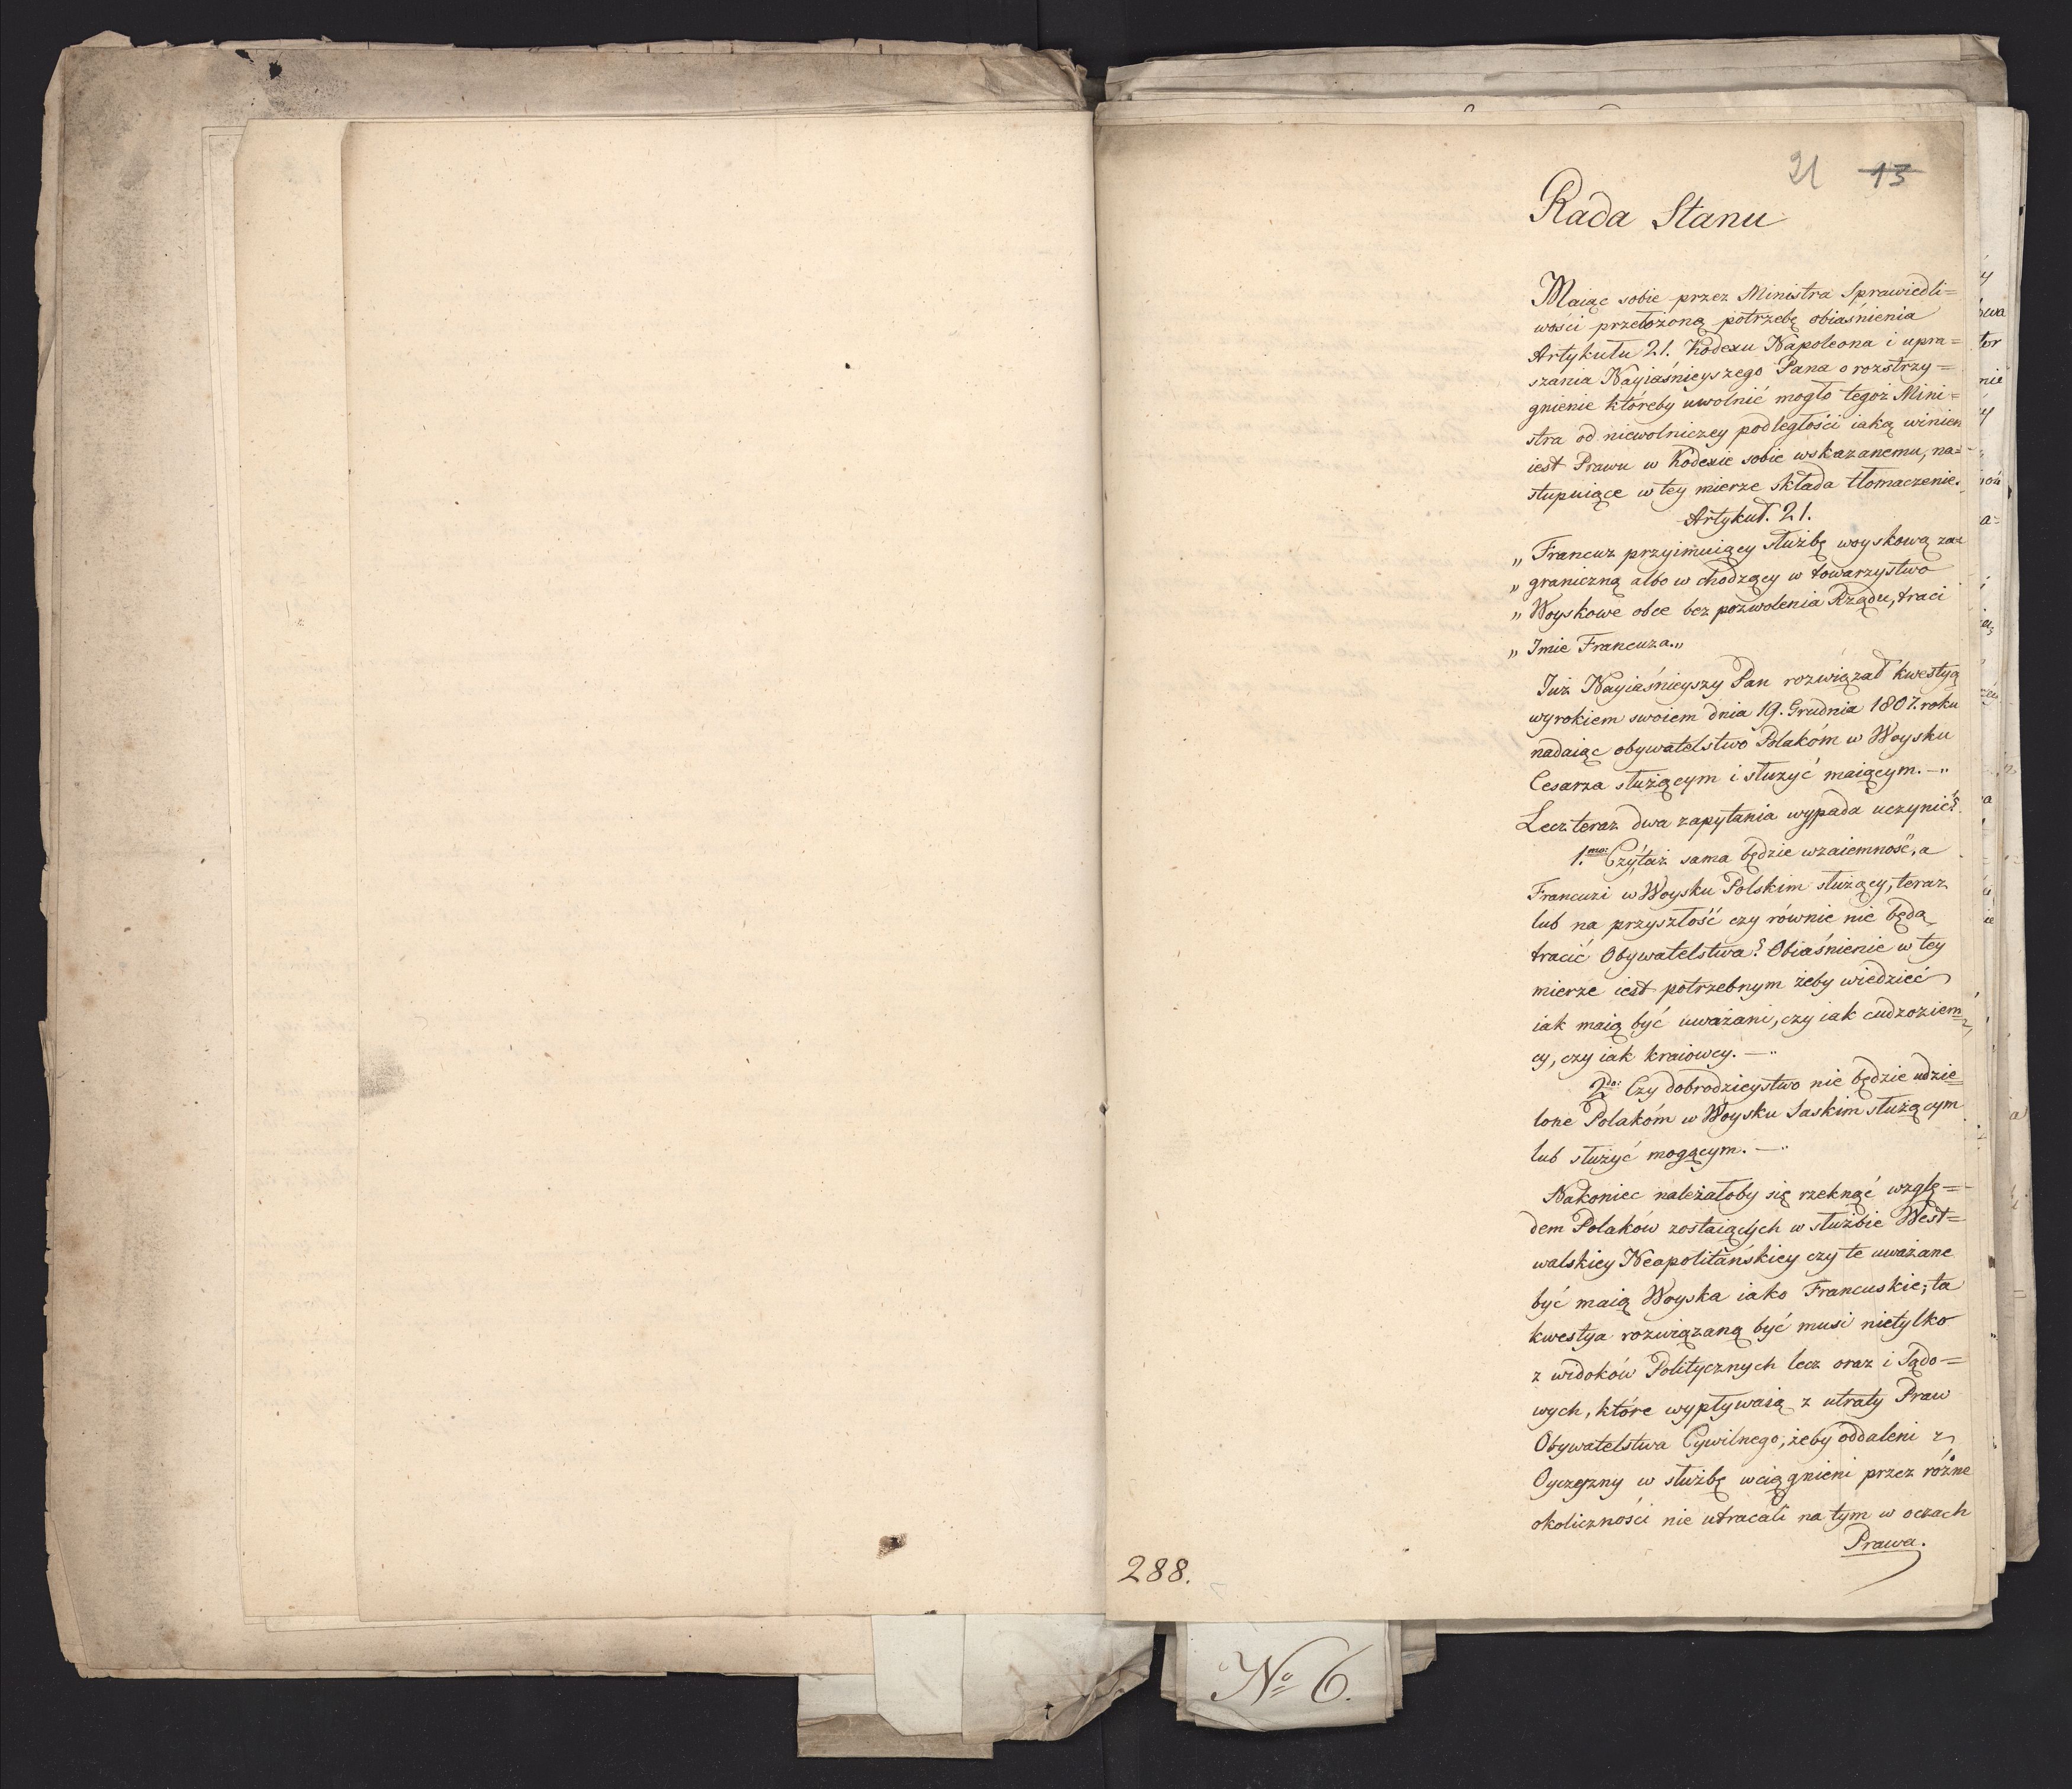 21 13
Rada Stanu
Maiąc sobie przez Ministra Sprawiedli=
wości przełożoną potrzebę obiaśnienia
Artykułu 21. Kodexu Napoleona i upra=
szania Nayiaśnieyszego Pana o rozstrzy=
gnienie któreby uwolnić mogło tegoż Mini=
stra od niewolniczey podległości iaką winien
iest Prawu w Kodexie sobie wskazanemu, na=
stępuiące w tey mierze składa tłomaczenie.
Artykuł. 21.
„ Francuz przyimuiący służbę woyskową za=
„ graniczną albo w chodzący w towarzystwo
„ Woyskowe obce bez pozwolenia Rządu, traci
„ Imie Francuza.„
Już Nayiaśnieyszy Pan rozwiązał kwestyą
wyrokiem swoiem dnia 19. Grudnia 1807. roku
nadaiąc obywatelstwo Polakóm w Woysku
Cesarza służącym i służyć maiącym. —„
Lecz teraz dwa zapytania wypada uczynić?
1.mo: Czy taż sama będzie wzaiemność, a
Francuzi w Woysku Polskim służący, teraz
lub na przyszłość czy równie nie będą
tracić Obywatelstwa? Obiaśnienie w tey
mierze iest potrzebnym żeby wiedzieć
iak maią być uważani, czy iak cudzoziem=
cy, czy iak kraiowcy. —„
2do: Czy dobrodzieystwo nie będzie udzie=
lone Polakóm w Woysku Saskim służącym
lub służyć mogącym. —„
Nakoniec należałoby się rzeknąć wzglę=
dem Polaków zostaiących w służbie West=
walskiey Neapolitańskiey czy te uważane
być maią Woyska iako Francuskie; ta
kwestya rozwiązaną być musi nietylko
z widoków Politycznych lecz oraz i Sądo=
wych, które wypływaią z utraty Praw
Obywatelstwa Cywilnego, żeby oddaleni z
Oyczyzny w służbę wciągnieni przez różne
okoliczności nie utracali na tym w oczach
Prawa.
288.
No 6.